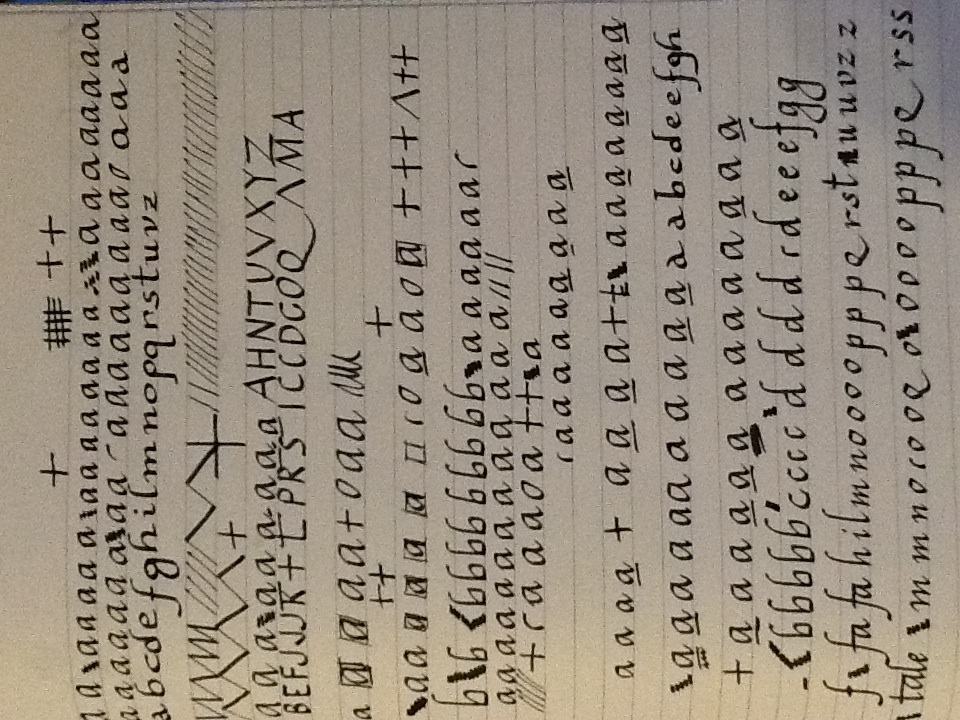 + ++
a a a a a a a a a a a a a a a a a a
a a a a a a a a a a a a a a a a a a
abcdefghilmnopqrstuvz
a a a a a a a a AHNTUVXYZ
BEFJJJR+LPRS ICDGOQ MA
a a a a + o a a
++ +
a a a a a a r o a a o a +++ ++
b b bbbbbbb a a a a a a r
a a a a a a a a a a a a a a
+ r a a a o a ++ a
r a a a a a a a a
a a a + a a a a ++ a a a a a a
a a a a a a a a a a abcdeefgh
+ a a a a a a a a a a a a
bbbbb cccc d d d d r d e e e f g g
f fafahilmnoooppperstuuvzz
tale mmnorooe o oooopppe rss